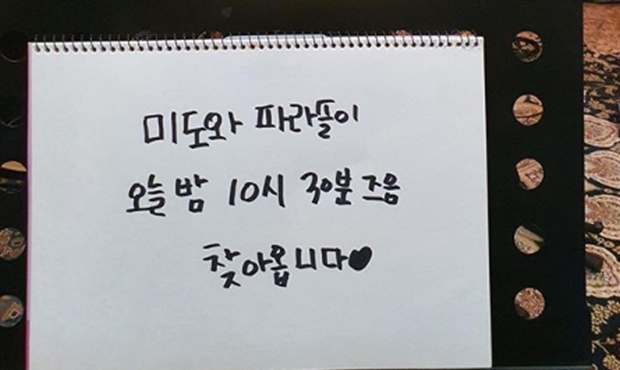 미도와 파라솔이
오늘 밤 10시 30분 즈음
찾아옵니다♥